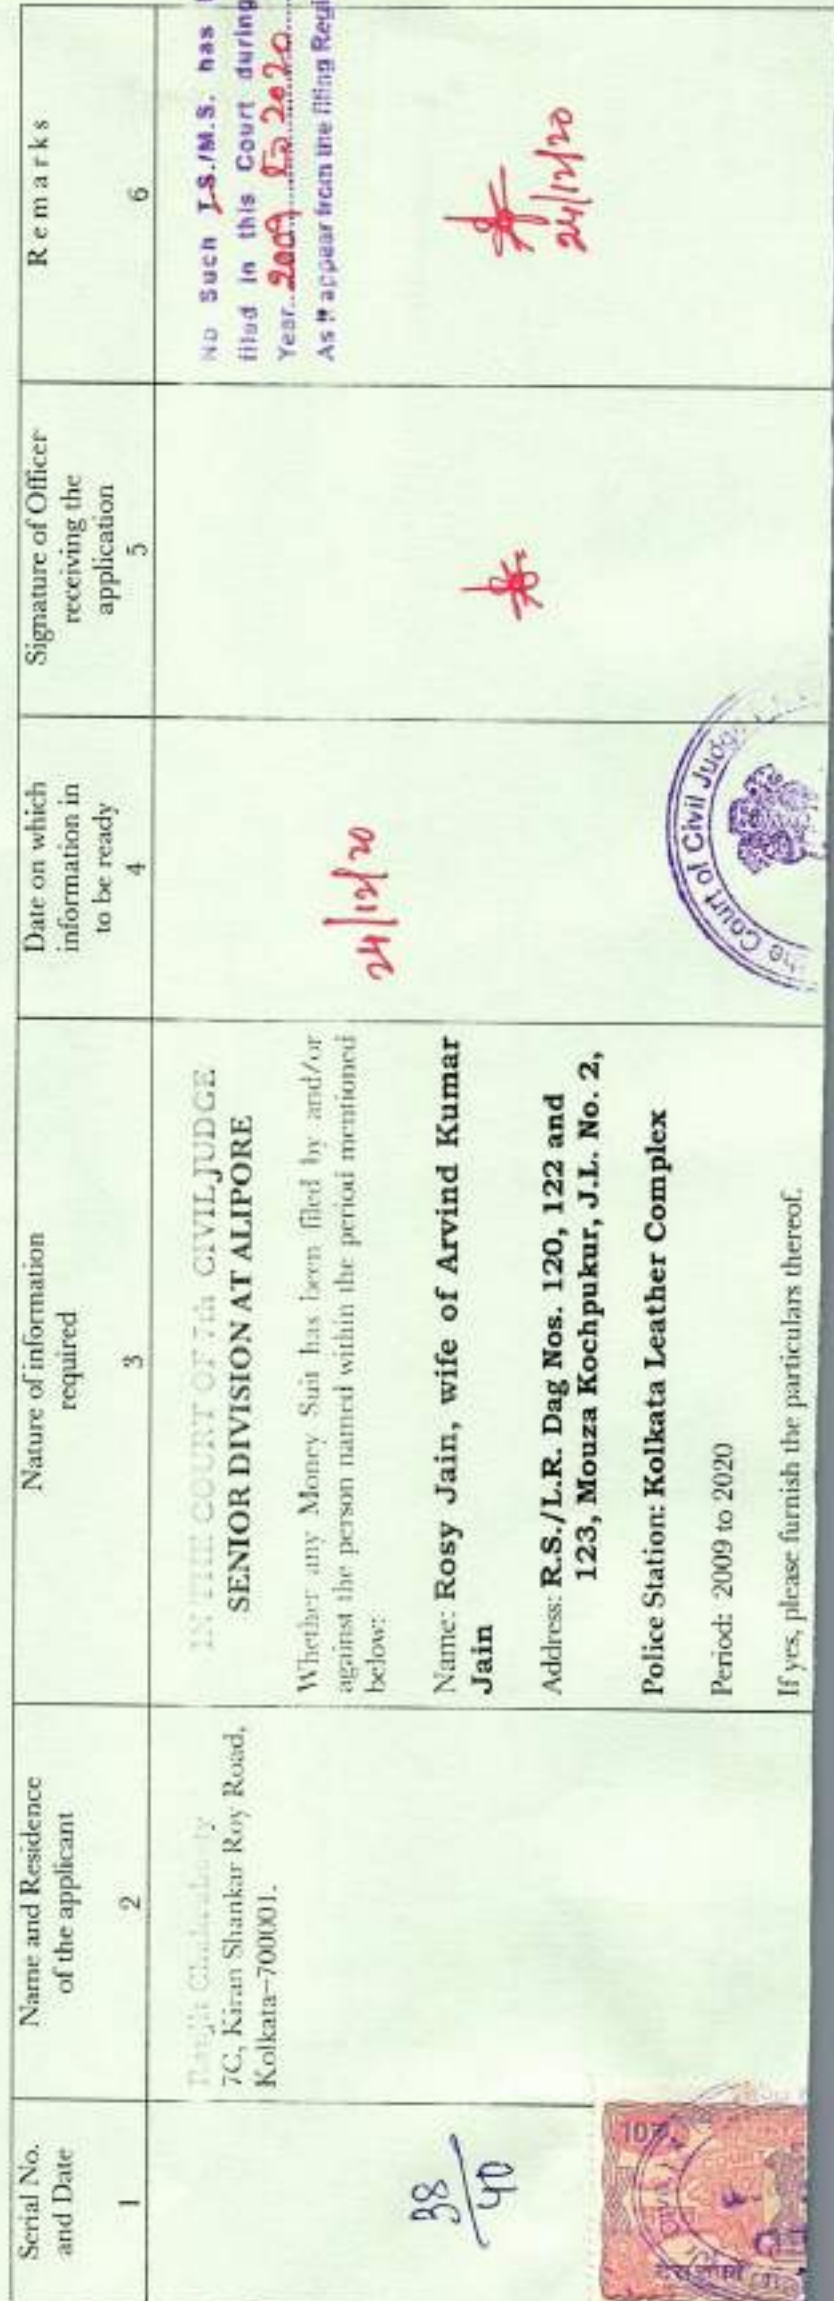 Serial No.
and Date
1
Name and Residence
of the applicant
2
Nature of information
required
3
Date on which
information in
to be ready
4
Signature of Officer
receiving the
application
5
Remarks
6
38
40
7C, Kiran Shankar Roy Road,
Kolkata–700001.
IN THE COURT OF 7th CIVIL JUDGE
SENIOR DIVISION AT ALIPORE
Whether any Money Suit has been filed by and/or
against the person named within the period mentioned
below:
Name: Rosy Jain, wife of Arvind Kumar
Jain
Address: R.S./L.R. Dag Nos. 120, 122 and
123, Mouza Kochpukur, J.L. No. 2,
Police Station: Kolkata Leather Complex
Period: 2009 to 2020
If yes, please furnish the particulars thereof.
24/12/20
No Such T.S./M.S. has
filed in this Court during
Year..2009 to 2020
As It appear from the filing Regi
24/12/20
the Court of Civil Judge
10